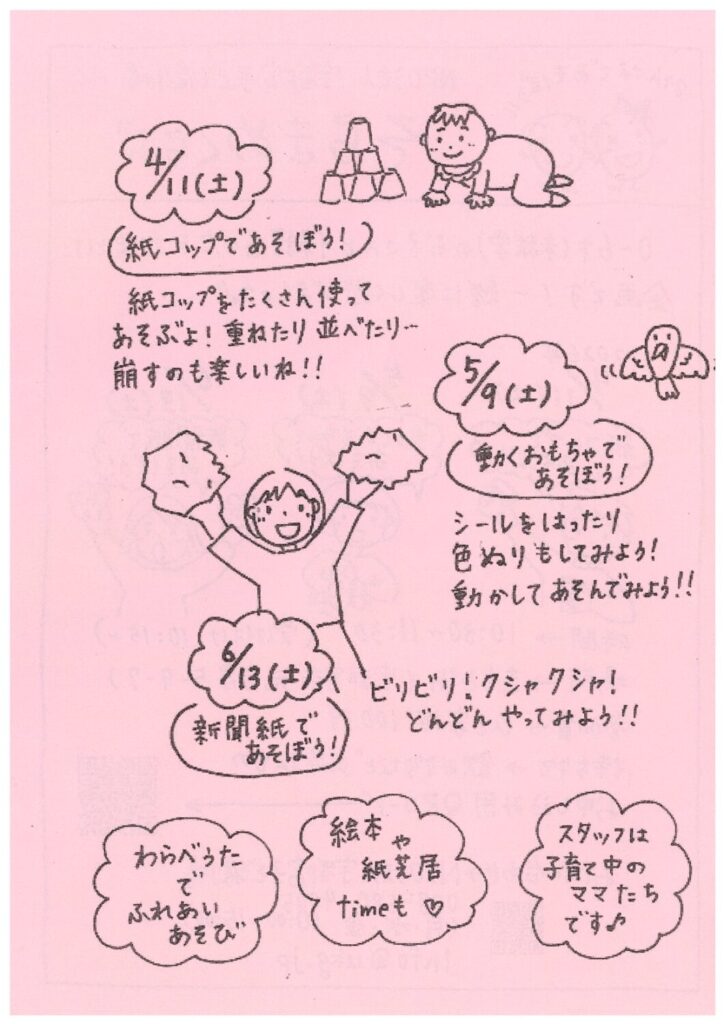 4/11(土)
紙コップであそぼう!
紙コップをたくさん使って
あそぶよ!重ねたり並べたり…
崩すのも楽しいね!!
5/9(土)
動くおもちゃで
あそぼう!
シールをはったり
色ぬりもしてみよう!
動かしてあそんでみよう!!
6/13(土)
新聞紙で
あそぼう!
ビリビリ!クシャクシャ!
どんどんやってみよう!!
わらべうた
で
ふれあい
あそび
絵本や
紙芝居
timeも♡
スタッフは
子育て中の
ママたち
です♪